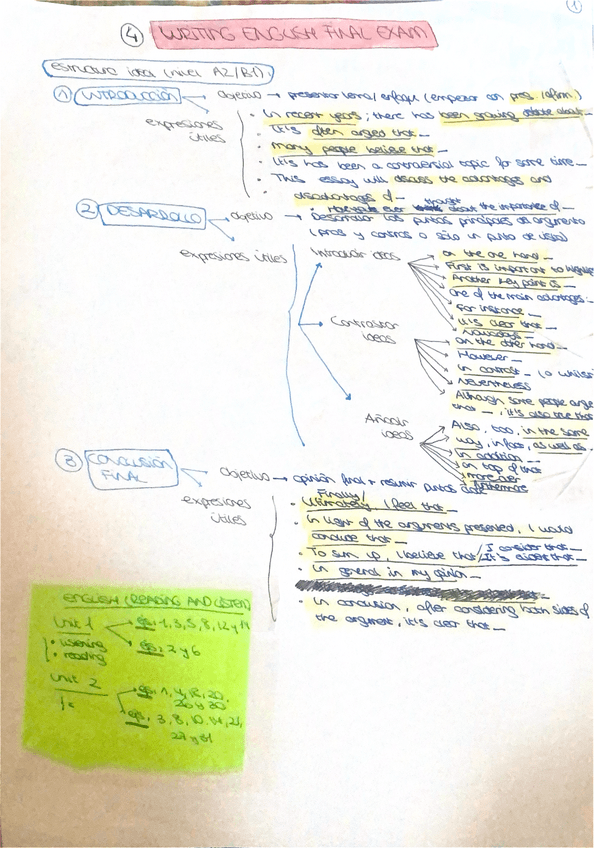 1
4 WRITING ENGLISH FINAL EXAM
estructura idea (nivel A2/B1).
1 INTRODUCCIÓN objetivo → presentar tema/enfoque (empezar con preg./afirm.)
expresiones útiles
• In recent years, there has been growing debate about_
• It's often argued that_
• Many people believe that_
• It's has been a controversial topic for some time_
• This essay will discuss the advantages and
disadvantages of_
• Have you ever thought about the importance of_
2 DESARROLLO objetivo → Desarrollar los puntos principales de argumento
(pros y contras o sólo un punto de vista)
expresiones útiles
Introducir ideas
On the one hand_
First is important to highlight
Another key point is_
One of the main advantages_
For instance_
It's clear that_
Nowadays_
Contrastar ideas
On the other hand_
However_
In contrast_ (o whilst
Nevertheless
Although some people argue
that_, it's also true that
Añadir ideas
Also, too, in the same
way, in fact, as well as_
In addition_
On top of that
moreover
furthermore
3 CONCLUSIÓN FINAL objetivo → opinión final + resumir puntos clave
expresiones útiles
• Finally/
Ultimately, I feel that_
• In light of the arguments presented, I would
conclude that_
• To sum up, I believe that/I consider that_
It's evident that_
• In general in my opinion_
• In conclusion, after considering both sides of
the argument, it's clear that_
ENGLISH (READING AND LISTEN)
Unit 1
• listening
• reading
ejs: 1, 3, 5, 8, 12 y 14
ejs: 2 y 6
Unit 2
ejs: 1, 4, 18, 20,
26 y 30
ejs: 3, 8, 10, 14, 21,
27 y 31